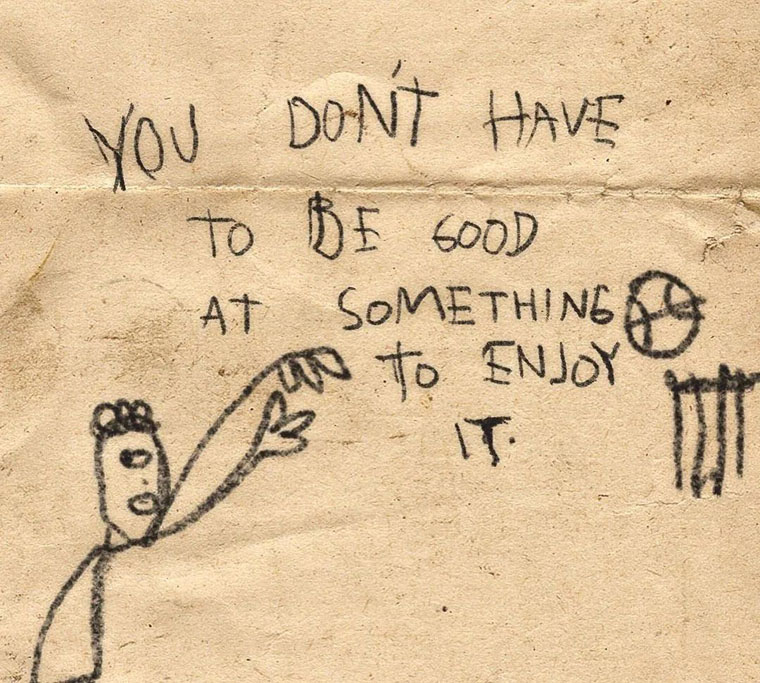 YOU DON'T HAVE
TO BE GOOD
AT SOMETHING
TO ENJOY
IT.